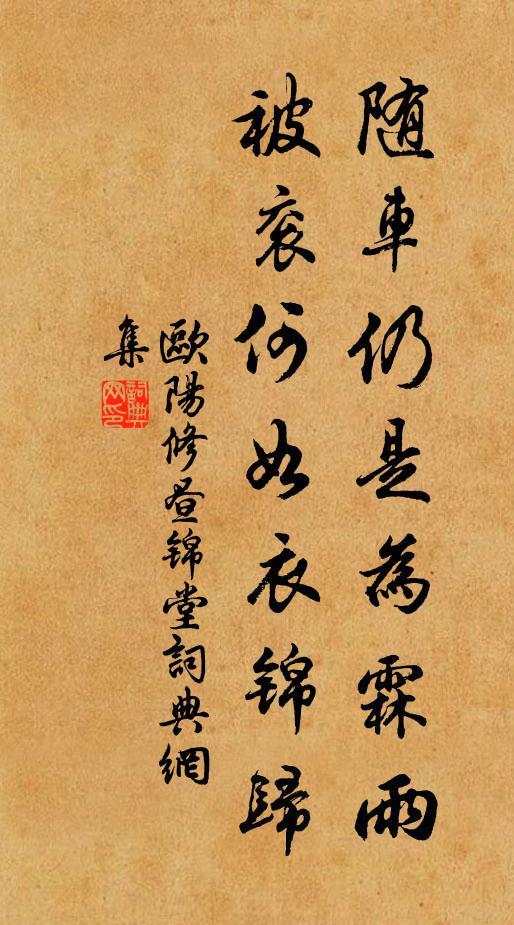 随車仍是為霖雨
被衮何如衣錦歸
歐陽修昼錦堂詞典網
集
詞典網印